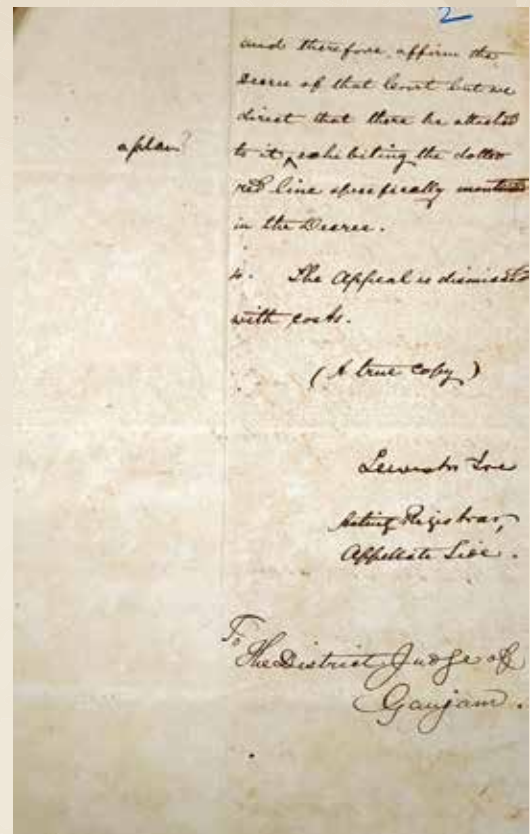 2
and therefore affirm the
Decree of that Court but we
direct that there be attached
a plan?
to it ‸ exhibiting the dotted
red line specifically mentioned
in the Decree.
4. The Appeal is dismissed
with costs.
(A true copy)
Acting Registrar,
Appellate Side.
To
The District Judge of
Ganjam.